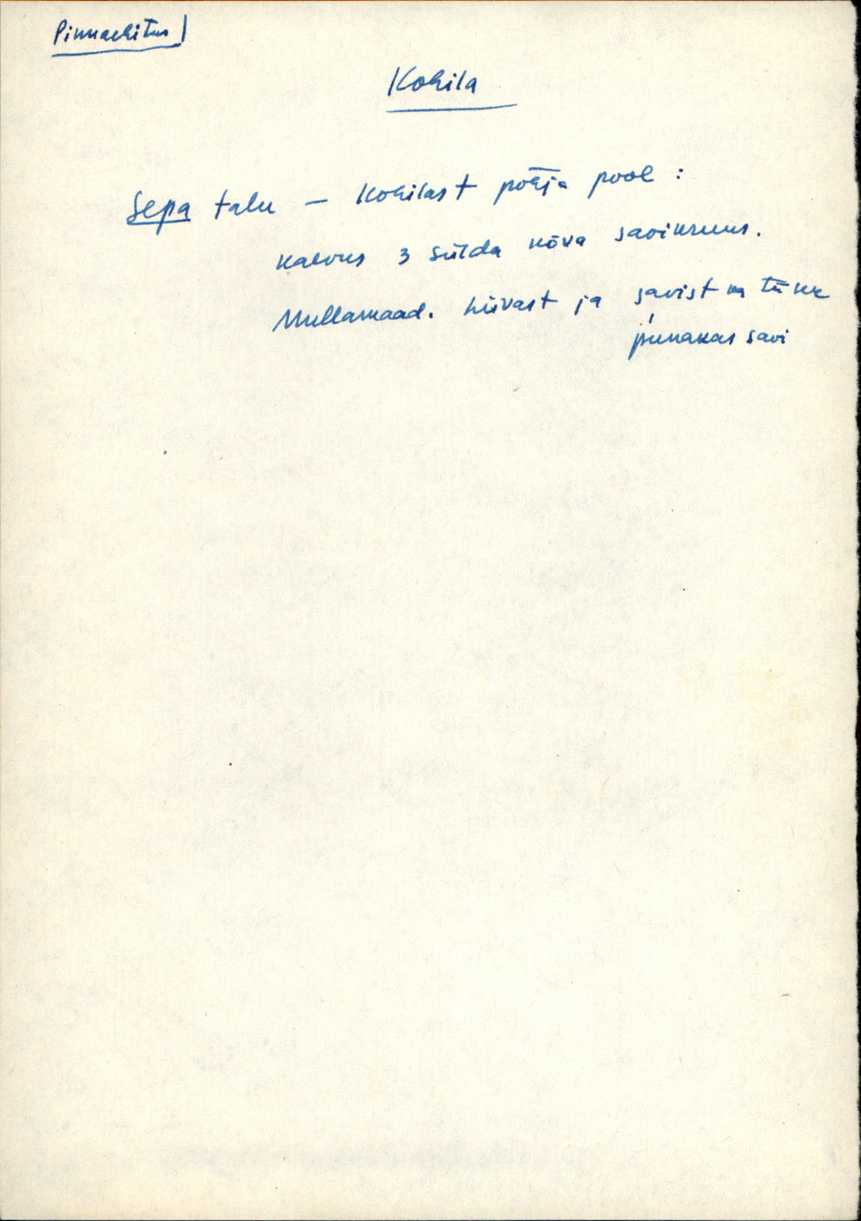 Pinnaehitus
Kohila
Sepa talu – Kohilast põhja pool :
kaevus 3 sülda kõva savikruus.
Mullamaad. Liivast ja savist ka tükke
punakas savi